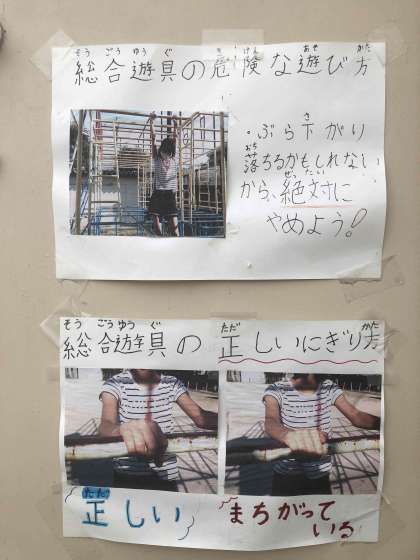 そうごうゆうぐ き けん あそ かた
総合遊具の危険な遊び方
さ
・ぶら下がり
おち
落ちるかもしれない
ぜったい
から、絶対に
やめよう!
そう ごうゆう ぐ ただ かた
総合遊具の正しいにぎり方
ただ
正しい
まちがって
いる